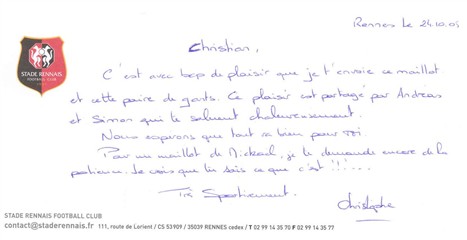 Rennes le 24.10.05
Christian,
C'est avec bcp de plaisir que je t'envoie ce maillot
et cette paire de gants. Ce plaisir est partagé par Andreas
et Simon qui te saluent chaleureusement.
Nous espérons que tout va bien pour toi.
Pour un maillot de Mickaël, je te demande encore de la
patience. Je crois que tu sais ce que c'est !!!...
Très Sportivement.
Christophe
STADE RENNAIS
FOOTBALL CLUB
STADE RENNAIS FOOTBALL CLUB
contact@staderennais.fr 111, route de Lorient / CS 53909 / 35039 RENNES cedex / T 02 99 14 35 70 F 02 99 14 35 77